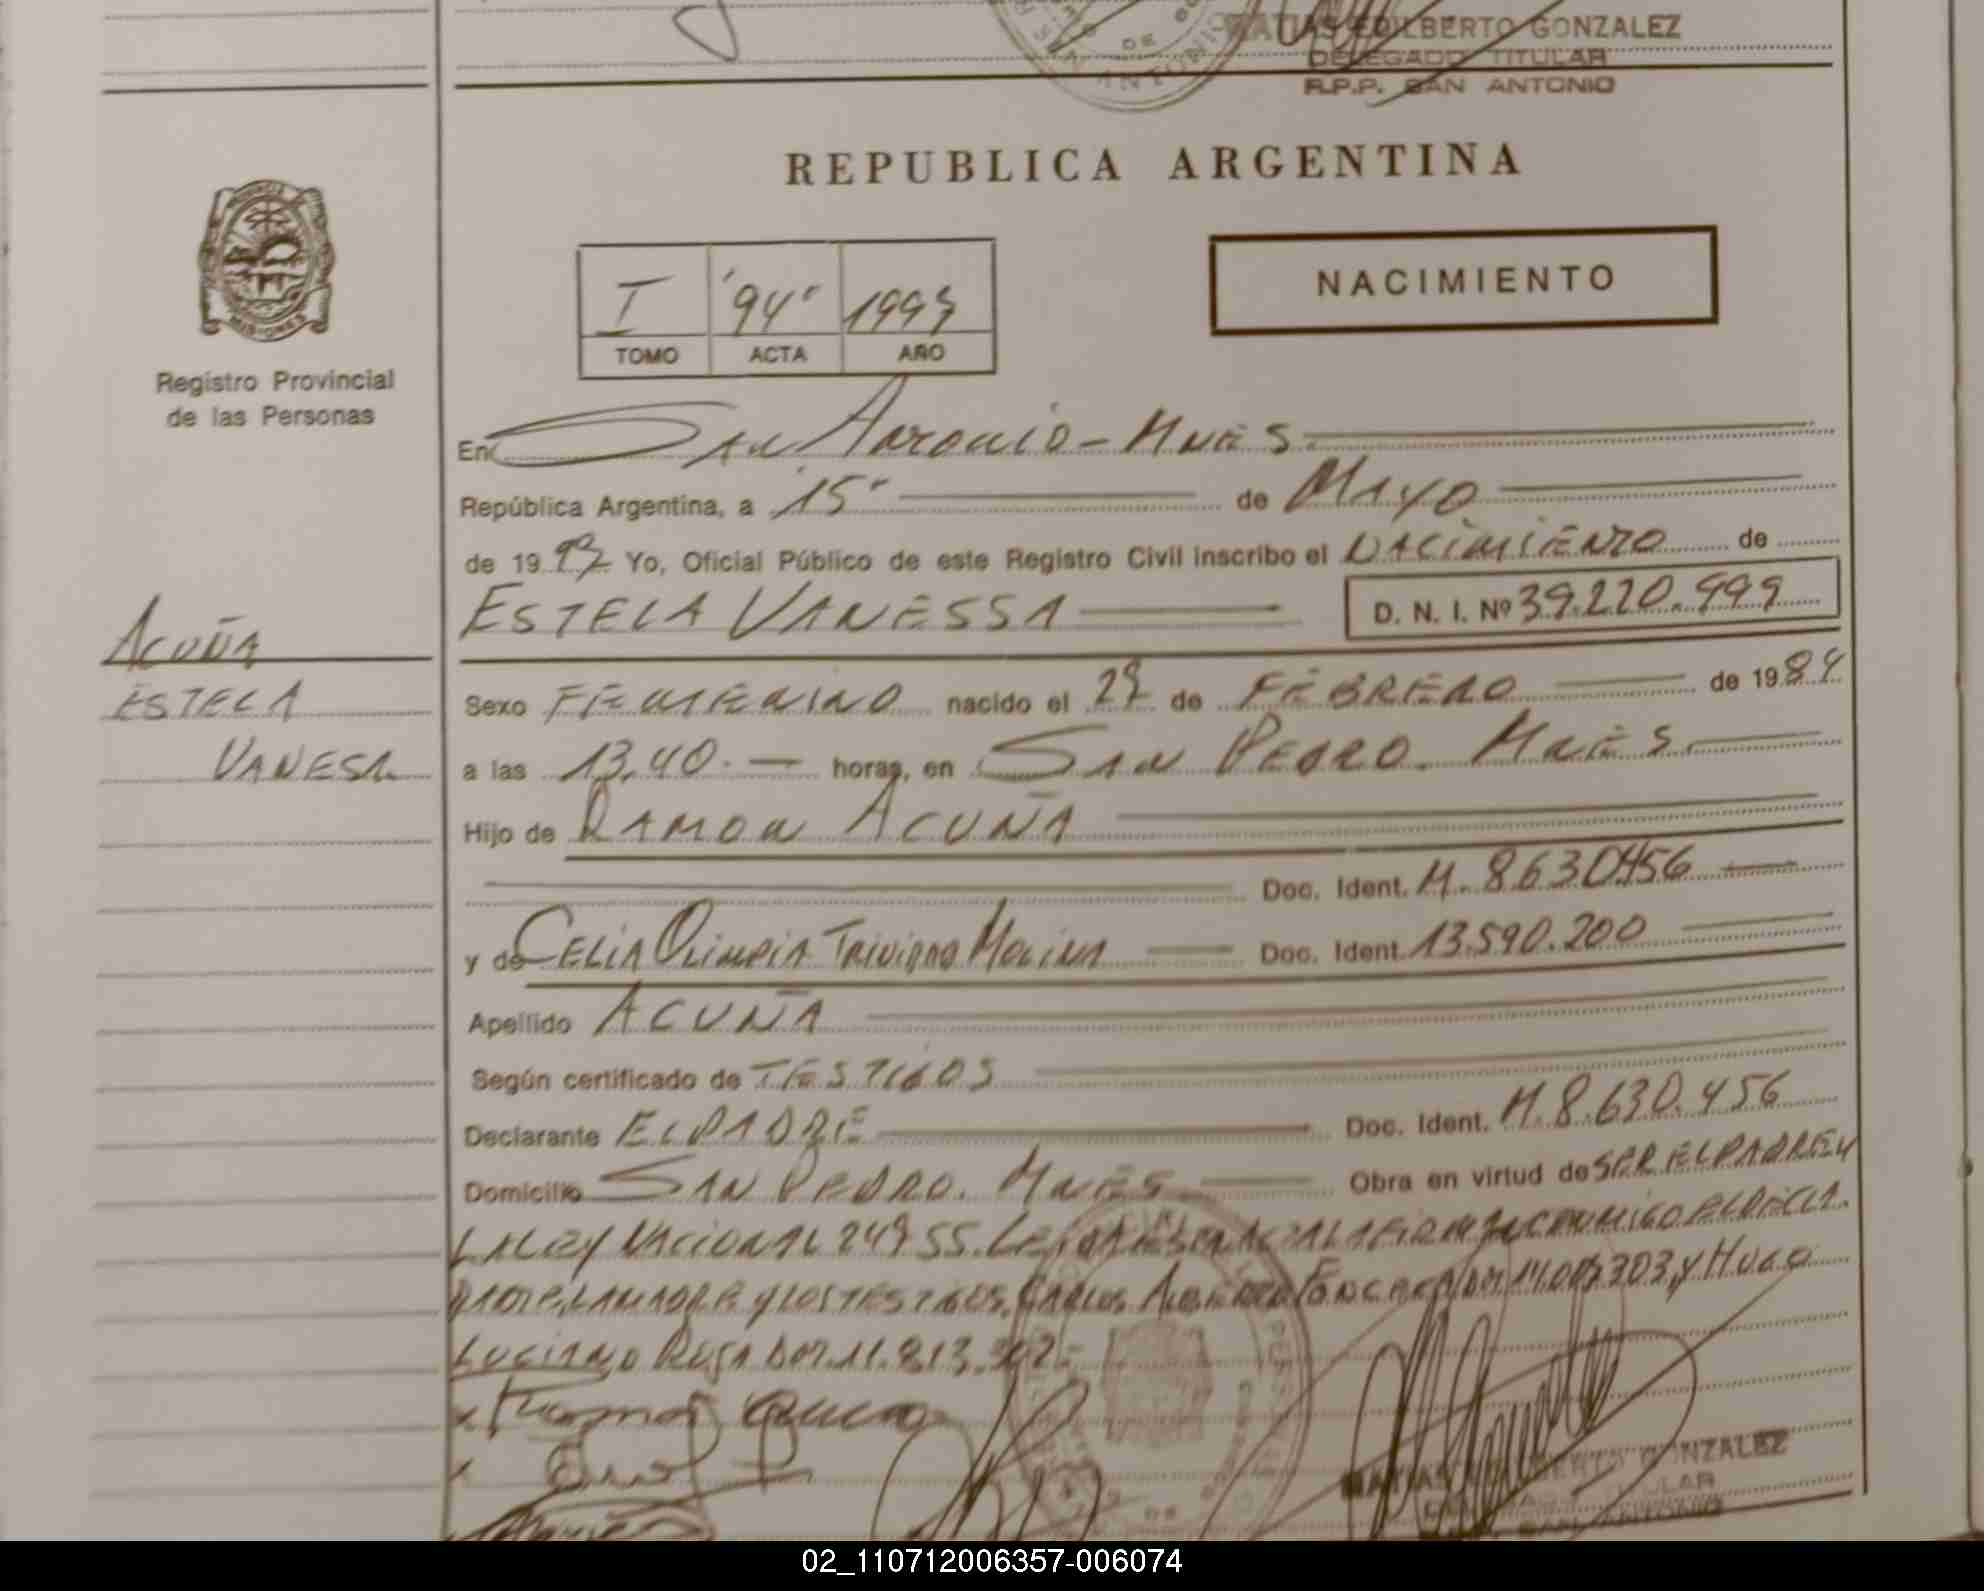 MATIAS EDILBERTO GONZALEZ
DELEGADO TITULAR
R.P.P. SAN ANTONIO
REPUBLICA ARGENTINA
NACIMIENTO
I "94" 1997
TOMO ACTA AÑO
MISIONES
Registro Provincial
de las Personas
En San Antonio - Mnes.
República Argentina, a 15 de Mayo
de 1997 Yo, Oficial Público de este Registro Civil inscribo el NACIMIENTO de
ESTELA VANESSA D. N. I. Nº 39.220.999
ACUÑA
ESTELA
VANESA
Sexo FEMENINO nacido el 29 de FEBRERO de 1984
a las 13,40.- horas, en SAN PEDRO. Mnes.
Hijo de RAMON ACUÑA
Doc. Ident. M. 8630456
y de CELIA OLIMPIA MOLINA Doc. Ident. 13.590.200
Apellido ACUÑA
Según certificado de TESTIGOS
Declarante EL PADRE Doc. Ident. M. 8.630.456
Domicilio SAN PEDRO. Mnes Obra en virtud de SER EL PADRE y
LA LEY NACIONAL LA FIRMAN CONMIGO EL DECLA
LA MADRE Y LOS TESTIGOS, CARLOS ALBERTO y HUGO
LUCIANO ROSA
MATIAS EDILBERTO GONZALEZ
DELEGADO TITULAR
R.P.P. SAN ANTONIO
02_110712006357-006074